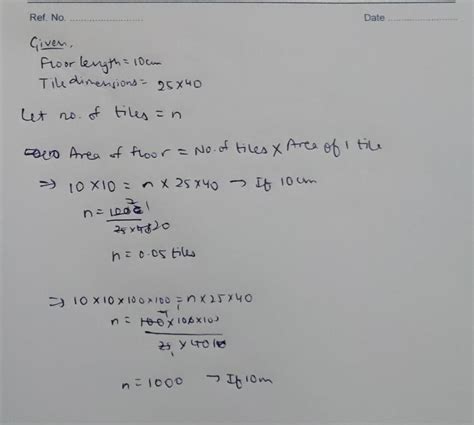 Ref. No. ........................ Date ........................
Given,
Floor length = 10cm
Tile dimensions = 25x40
Let no. of tiles = n
Area of floor = No. of tiles x Area of 1 tile
⇒ 10 x 10 = n x 25 x 40 → If 10cm
n =
25 x
n = 0.05 tiles
⇒ 10 x 10 x 100 x 100 = n x 25 x 40
n = 100 x 100 x 100
25 x 40
n = 1000 → If 10m